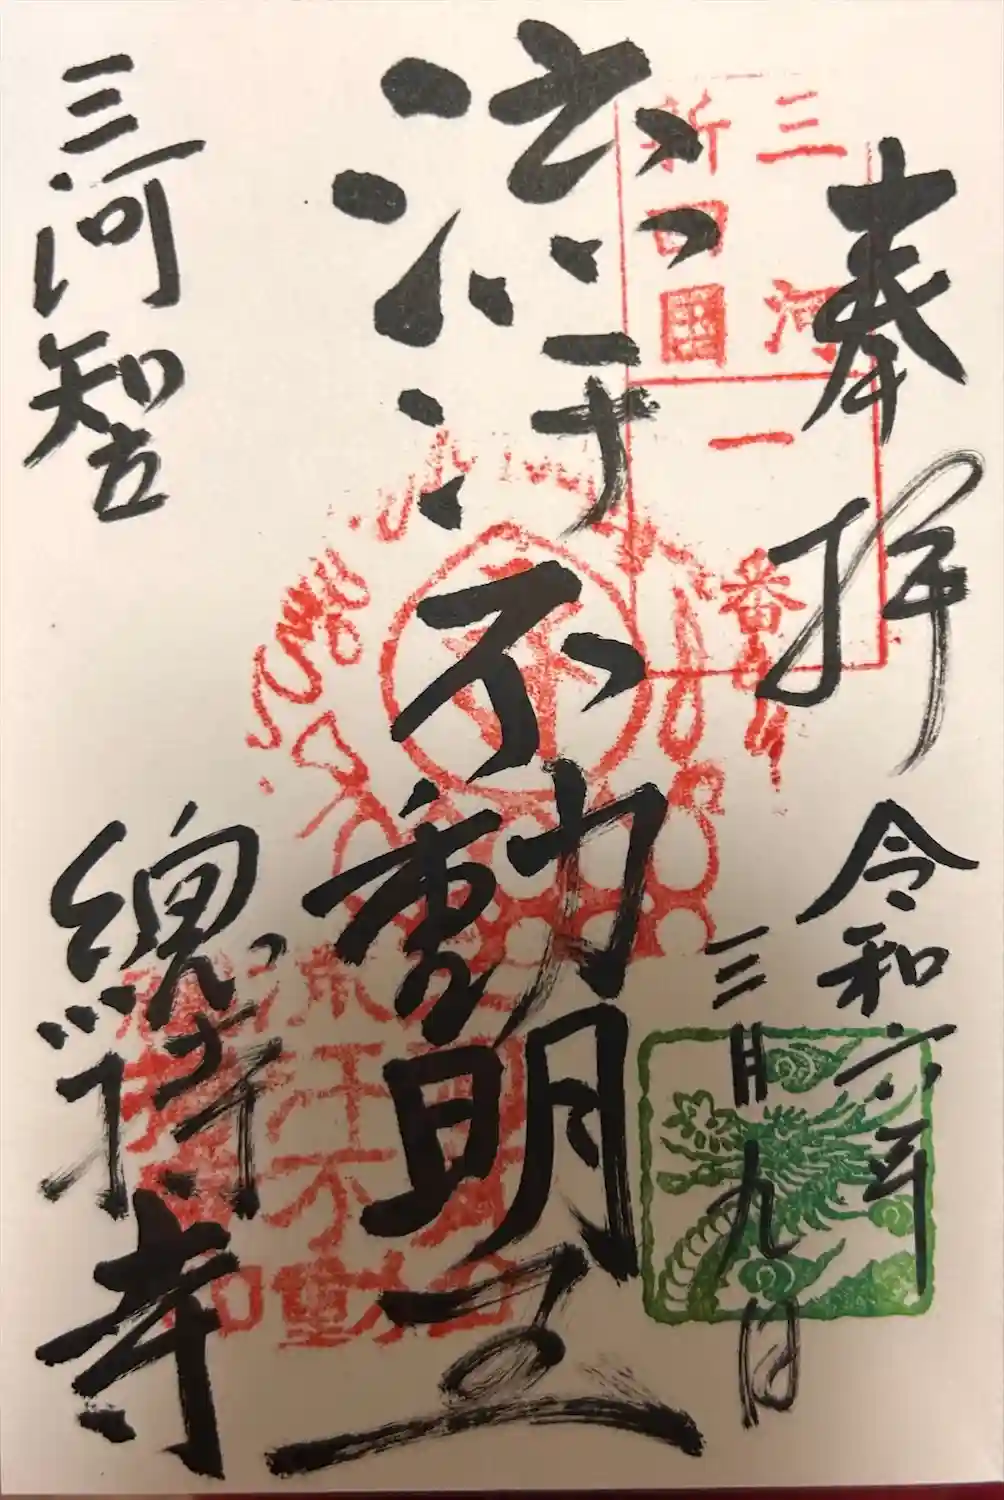 奉拝
令和六年
三月九日
三河
新四国
一
番
流汗不動明王
三河智立
總持寺